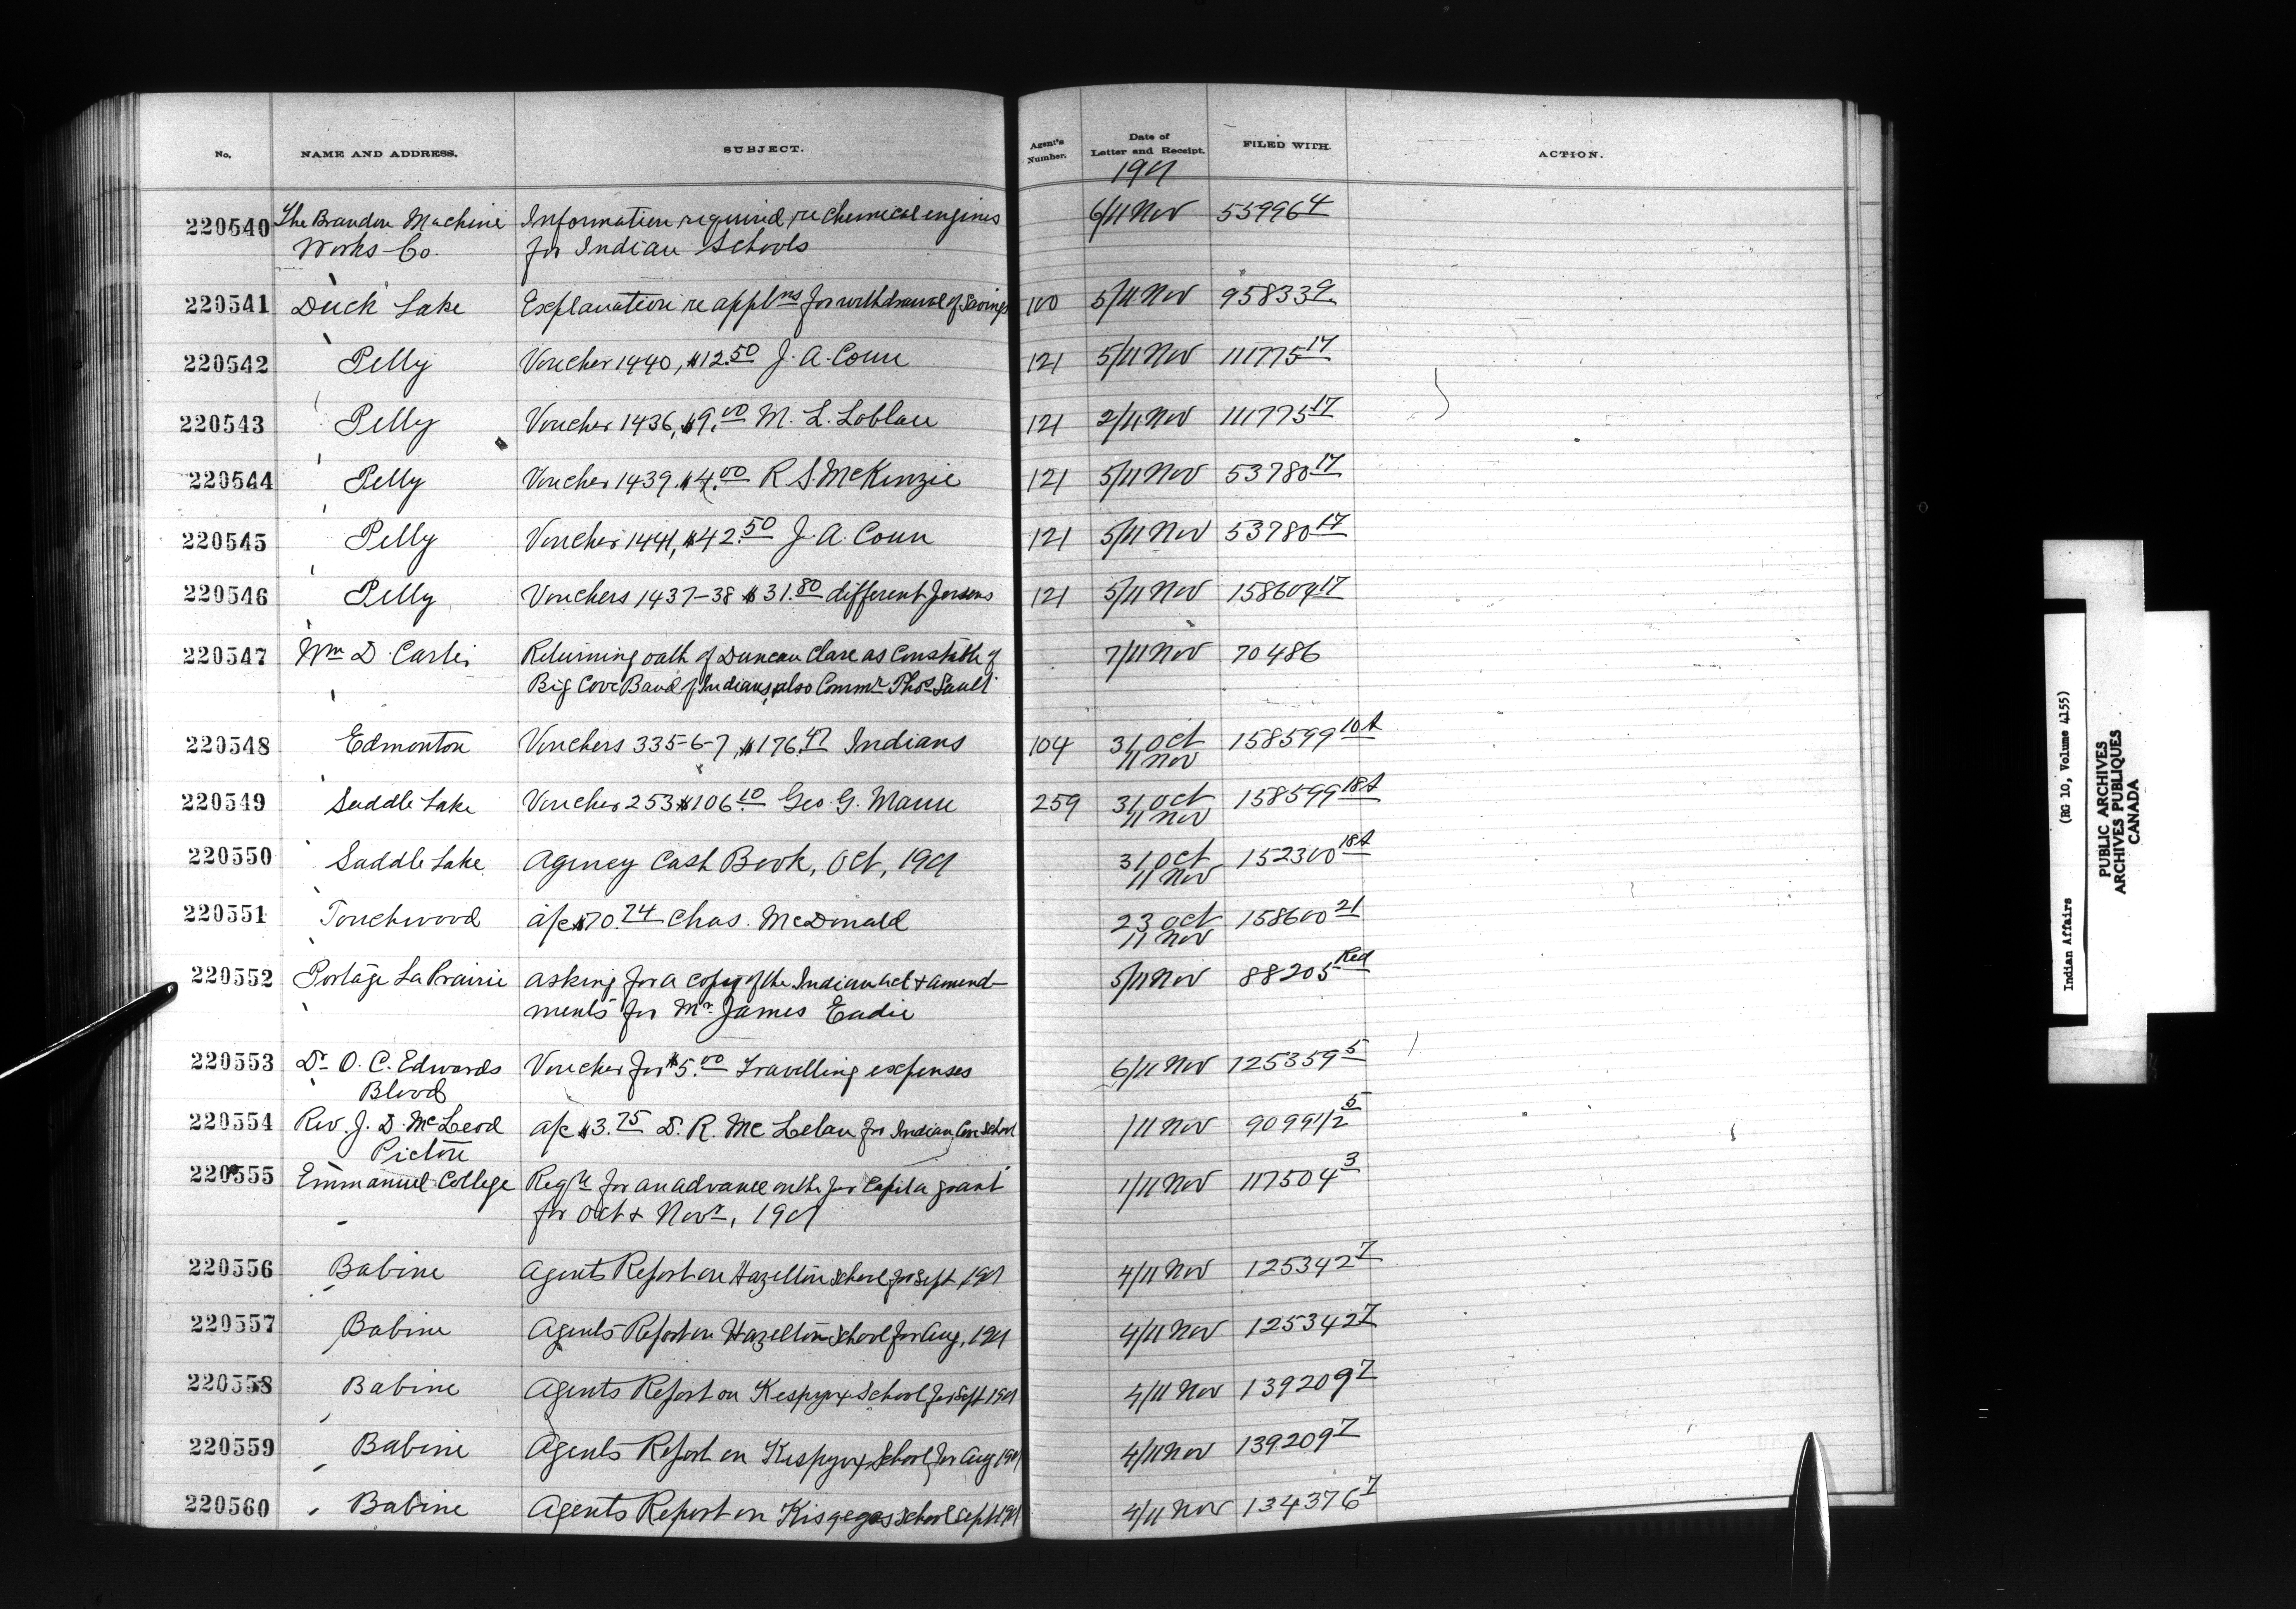 No. NAME AND ADDRESS. SUBJECT. Agent's Number. Date of Letter and Receipt. FILED WITH. ACTION.
1901
220540 The Brandon Machine Information required re chemical engines 6/11 Nov 55996 4
Works Co. for Indian Schools
220541 Duck Lake Explanation re applns for withdrawal of Savings 100 5/11 Nov 95833 9
220542 Pelly Voucher 1440, $12.50 J. A. Coun 121 5/11 Nov 111775 17
220543 Pelly Voucher 1436, $9.00 M. L. Loblau 121 2/11 Nov 111775 17
220544 Pelly Voucher 1439 $4.00 R S. McKenzie 121 5/11 Nov 53780 17
220545 Pelly Voucher 1441, $42.50 J. A. Coun 121 5/11 Nov 53780 17
220546 Pelly Vouchers 1437-38 $31.80 different persons 121 5/11 Nov 158604 17
220547 Wm D. Carter Returning oath of Duncan Clare as Constable of 7/11 Nov 70486
Big Cove Band of Indians, also Commr Thos Sault
220548 Edmonton Vouchers 335-6-7, $176.47 Indians 104 31 Oct 158599 10A
11 Nov
220549 Saddle Lake Voucher 253 $106.10 Geo. G. Mann 259 31 Oct 158599 18A
11 Nov
220550 Saddle Lake Agency Cash Book, Oct, 1901 31 Oct 152300 18A
11 Nov
220551 Touchwood a/c $70.74 Chas. McDonald 23 Oct 158600 21
11 Nov
220552 Portage La Prairie asking for a copy of the Indian Act & amend- 5/11 Nov 88205 Red
ments for Mr. James Eadie
220553 Dr O. C. Edwards Voucher for $5.00 Travelling expenses 6/11 Nov 125359 5
Blood
220554 Rev. J. D. McLeod a/c $3.75 D. R. McLelan for Indian Cove School 1/11 Nov 90991/2 5
Pictou
220555 Emmanuel College Reqn for an advance on the per Capita grant 1/11 Nov 117504 3
for Oct & Novr, 1901
220556 Babine Agents Report on Hazelton School for Sept 1901 4/11 Nov 125342 7
220557 Babine Agents Report on Hazelton School for Aug, 1901 4/11 Nov 125342 7
220558 Babine Agents Report on Kespyox School for Sept 1901 4/11 Nov 139209 7
220559 Babine Agents Report on Kispyox School for Aug 1901 4/11 Nov 139209 7
220560 Babine Agents Report on Kisgegas School Sept 1901 4/11 Nov 134376 7
Indian Affairs (RG 10, Volume 4155)
PUBLIC ARCHIVES
ARCHIVES PUBLIQUES
CANADA